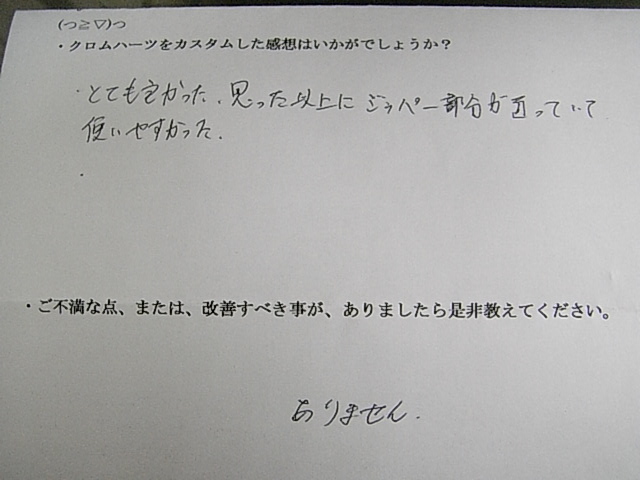 (つ≧▽)つ
・クロムハーツをカスタムした感想はいかがでしょうか?
・とても良かった.思った以上にジッパー部分が立っていて
使いやすかった.
・
・ご不満な点、または、改善すべき事が、ありましたら是非教えてください。
ありません.